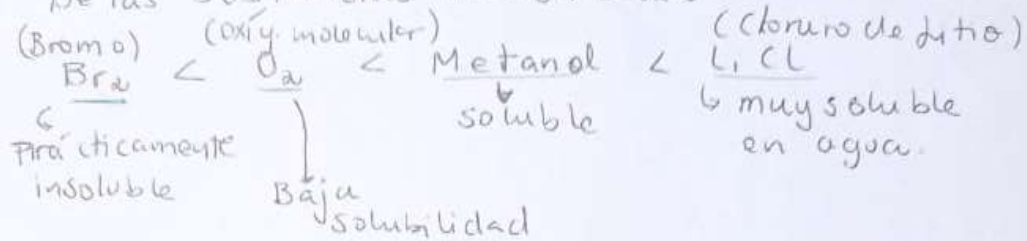 De las
(Bromo) (oxíg. molecular) (Cloruro de Litio)
Br₂ < O₂ < Metanol < LiCl
Prácticamente insoluble
Baja solubilidad
soluble
muy soluble en agua.